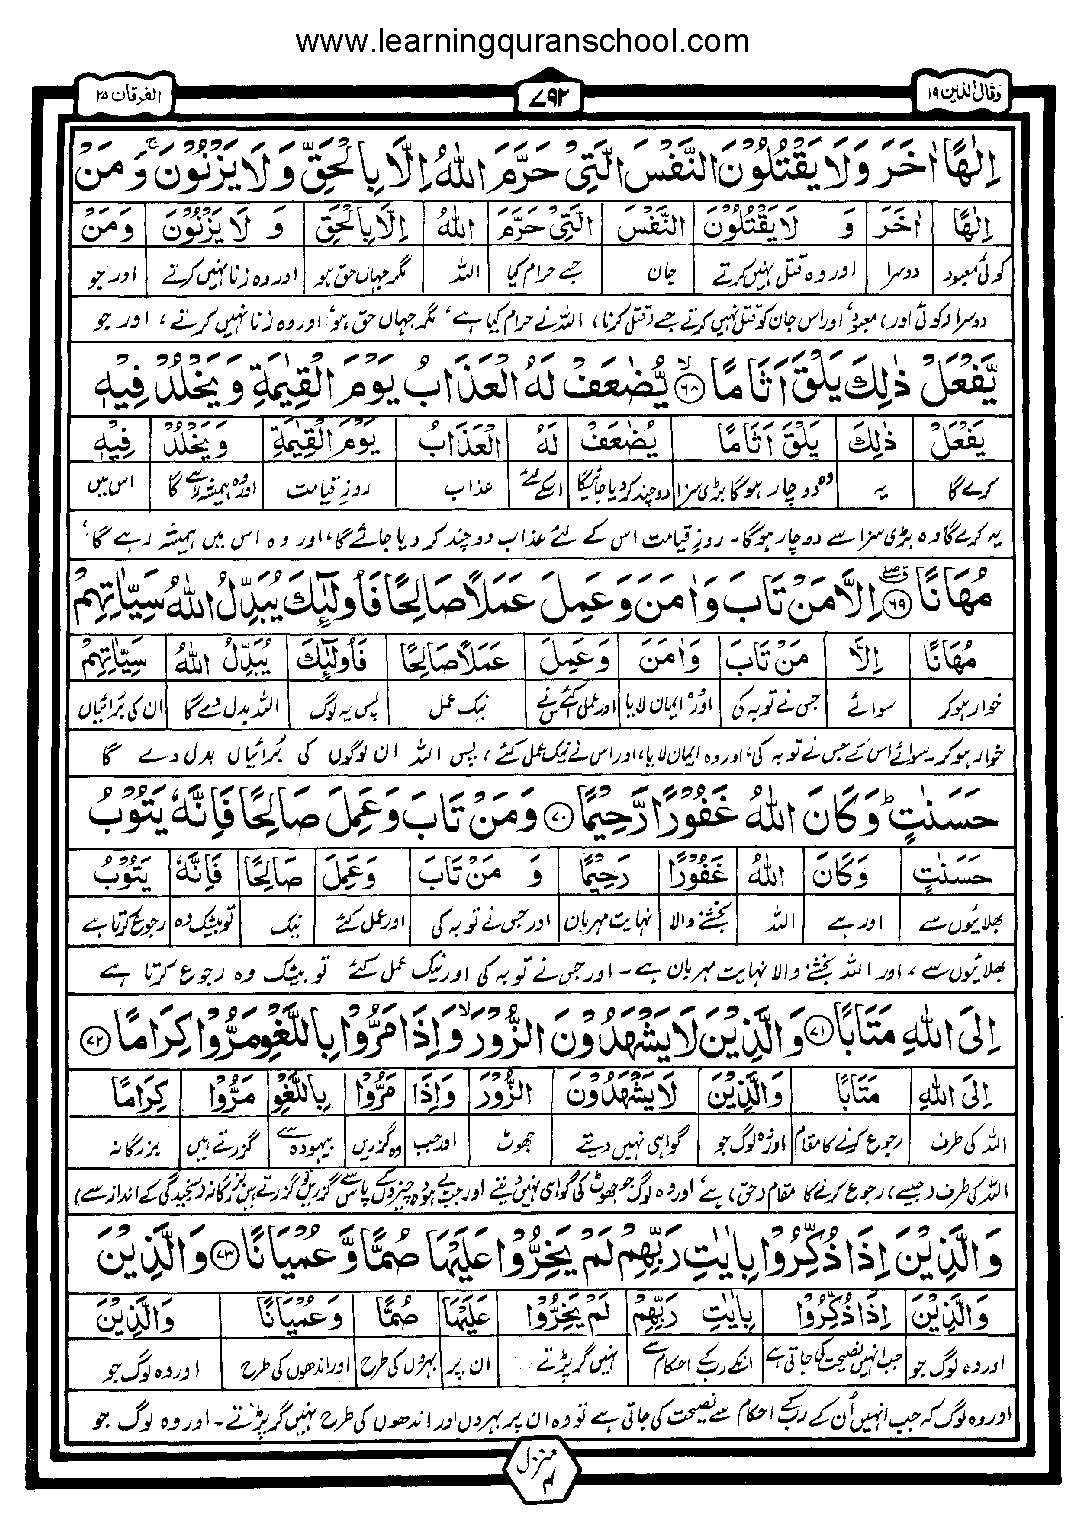 www.learningquranschool.com
وقال الذین ۱۹
۷۹۲
الفرقان ۲۵
اِلٰهًا اٰخَرَ وَلَا يَقْتُلُوْنَ النَّفْسَ الَّتِيْ حَرَّمَ اللهُ اِلَّا بِالْحَقِّ وَلَا يَزْنُوْنَ ۚ وَمَنْ
اِلٰهًا اٰخَرَ وَ لَا يَقْتُلُوْنَ النَّفْسَ الَّتِيْ حَرَّمَ اللهُ اِلَّا بِالْحَقِّ وَ لَا يَزْنُوْنَ وَمَنْ
کوئی معبود دوسرا اور وہ قتل نہیں کرتے جان جسے حرام کیا اللہ مگر جہاں حق ہو اور وہ زنا نہیں کرتے اور جو
دوسرا (کوئی اور) معبود، اور اس جان کو قتل نہیں کرتے جسے (قتل کرنا) اللہ نے حرام کیا ہے، مگر جہاں حق ہو، اور وہ زنا نہیں کرتے، اور جو
يَّفْعَلْ ذٰلِكَ يَلْقَ اَثَامًا ۙ‏﴿۶۸﴾ يُّضٰعَفْ لَهُ الْعَذَابُ يَوْمَ الْقِيٰمَةِ وَيَخْلُدْ فِيْهٖ
يَفْعَلْ ذٰلِكَ يَلْقَ اَثَامًا يُضٰعَفْ لَهُ الْعَذَابُ يَوْمَ الْقِيٰمَةِ وَيَخْلُدْ فِيْهٖ
کرے گا یہ وہ دوچار ہوگا بڑی سزا دوچند کردیا جائیگا اسکے لئے عذاب روزِ قیامت اور وہ ہمیشہ رہے گا اس میں
یہ کرے گا وہ بڑی سزا سے دوچار ہوگا۔ روزِ قیامت اس کے لئے عذاب دوچند کر دیا جائے گا، اور وہ اس میں ہمیشہ رہے گا،
مُهَانًا ﴿۶۹﴾ اِلَّا مَنْ تَابَ وَاٰمَنَ وَعَمِلَ عَمَلًا صَالِحًا فَاُولٰٓئِكَ يُبَدِّلُ اللهُ سَيِّاٰتِهِمْ
مُهَانًا اِلَّا مَنْ تَابَ وَاٰمَنَ وَعَمِلَ عَمَلًا صَالِحًا فَاُولٰٓئِكَ يُبَدِّلُ اللهُ سَيِّاٰتِهِمْ
خوار ہوکر سوائے جس نے توبہ کی اور وہ ایمان لایا اور عمل کئے اس نے نیک عمل پس یہ لوگ اللہ بدل دے گا ان کی برائیاں
خوار ہوکر۔ سوائے اس کے جس نے توبہ کی، اور وہ ایمان لایا، اور اس نے نیک عمل کئے، پس اللہ ان لوگوں کی برائیاں بدل دے گا
حَسَنٰتٍ ؕ وَكَانَ اللهُ غَفُوْرًا رَّحِيْمًا ﴿۷۰﴾ وَمَنْ تَابَ وَعَمِلَ صَالِحًا فَاِنَّهٗ يَتُوْبُ
حَسَنٰتٍ وَكَانَ اللهُ غَفُوْرًا رَحِيْمًا وَ مَنْ تَابَ وَعَمِلَ صَالِحًا فَاِنَّهٗ يَتُوْبُ
بھلائیوں سے اور ہے اللہ بخشنے والا نہایت مہربان اور جس نے توبہ کی اور عمل کئے نیک تو بیشک وہ رجوع کرتا ہے
بھلائیوں سے، اور اللہ بخشنے والا نہایت مہربان ہے۔ اور جس نے توبہ کی اور نیک عمل کئے تو بیشک وہ رجوع کرتا ہے
اِلَى اللهِ مَتَابًا ﴿۷۱﴾ وَالَّذِيْنَ لَا يَشْهَدُوْنَ الزُّوْرَ ۙ وَاِذَا مَرُّوْا بِاللَّغْوِ مَرُّوْا كِرَامًا ﴿۷۲﴾
اِلَى اللهِ مَتَابًا وَالَّذِيْنَ لَا يَشْهَدُوْنَ الزُّوْرَ وَاِذَا مَرُّوْا بِاللَّغْوِ مَرُّوْا كِرَامًا
اللہ کی طرف رجوع کرنے کا مقام اور وہ لوگ جو گواہی نہیں دیتے جھوٹ اور جب وہ گزریں بیہودہ سے گزرتے ہیں بزرگانہ
اللہ کی طرف (جیسے) رجوع کرنے کا مقام (حق) ہے، اور وہ لوگ جو جھوٹ کی گواہی نہیں دیتے اور جب بے ہودہ چیزوں کے پاس سے گزریں تو گزرتے ہیں بزرگانہ (سنجیدگی کے انداز سے)
وَالَّذِيْنَ اِذَا ذُكِّرُوْا بِاٰيٰتِ رَبِّهِمْ لَمْ يَخِرُّوْا عَلَيْهَا صُمًّا وَّعُمْيَانًا ﴿۷۳﴾ وَالَّذِيْنَ
وَالَّذِيْنَ اِذَا ذُكِّرُوْا بِاٰيٰتِ رَبِّهِمْ لَمْ يَخِرُّوْا عَلَيْهَا صُمًّا وَعُمْيَانًا وَالَّذِيْنَ
اور وہ لوگ جو جب انہیں نصیحت کی جاتی ہے انکے رب کے احکام سے نہیں گر پڑتے ان پر بہروں کی طرح اور اندھوں کی طرح اور وہ لوگ جو
اور وہ لوگ کہ جب انہیں اُن کے رب کے احکام سے نصیحت کی جاتی ہے تو وہ ان پر بہروں اور اندھوں کی طرح نہیں گر پڑتے۔ اور وہ لوگ جو
منزل ۴